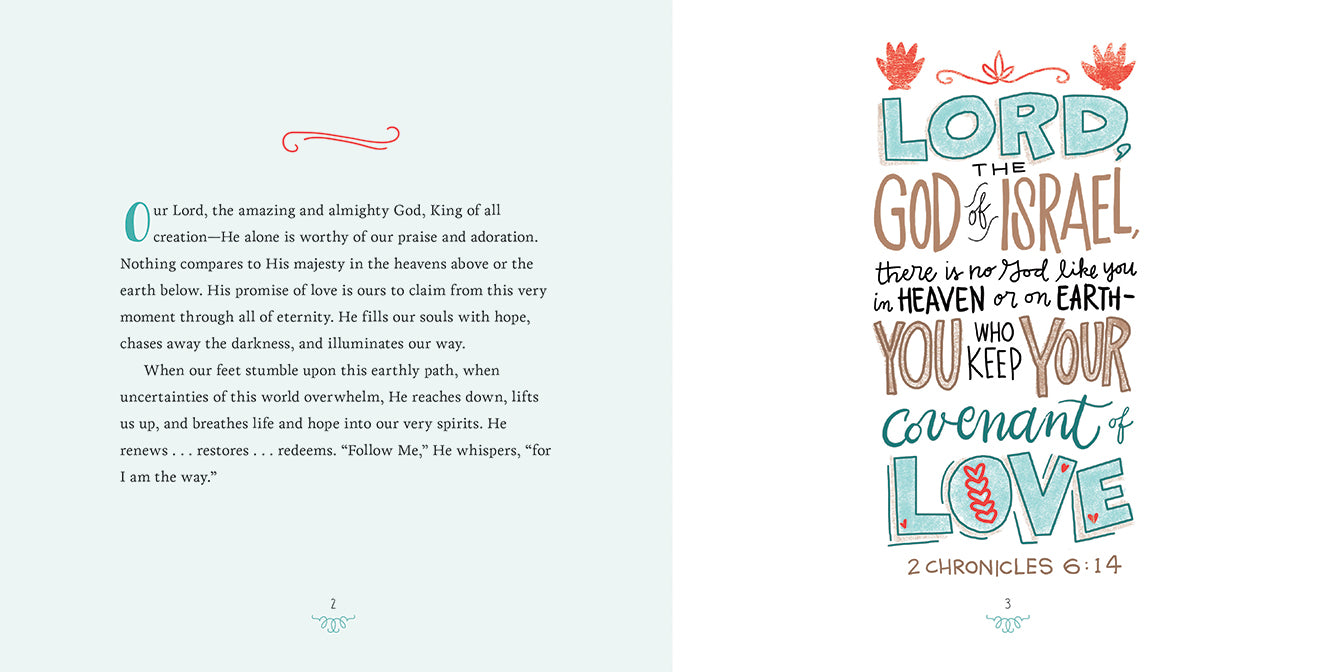 Our Lord, the amazing and almighty God, King of all
creation—He alone is worthy of our praise and adoration.
Nothing compares to His majesty in the heavens above or the
earth below. His promise of love is ours to claim from this very
moment through all of eternity. He fills our souls with hope,
chases away the darkness, and illuminates our way.
When our feet stumble upon this earthly path, when
uncertainties of this world overwhelm, He reaches down, lifts
us up, and breathes life and hope into our very spirits. He
renews . . . restores . . . redeems. “Follow Me,” He whispers, “for
I am the way.”
2
LORD,
THE
GOD of ISRAEL,
there is no God like you
in HEAVEN or on EARTH-
YOU WHO KEEP YOUR
covenant of
LOVE
2 CHRONICLES 6:14
3